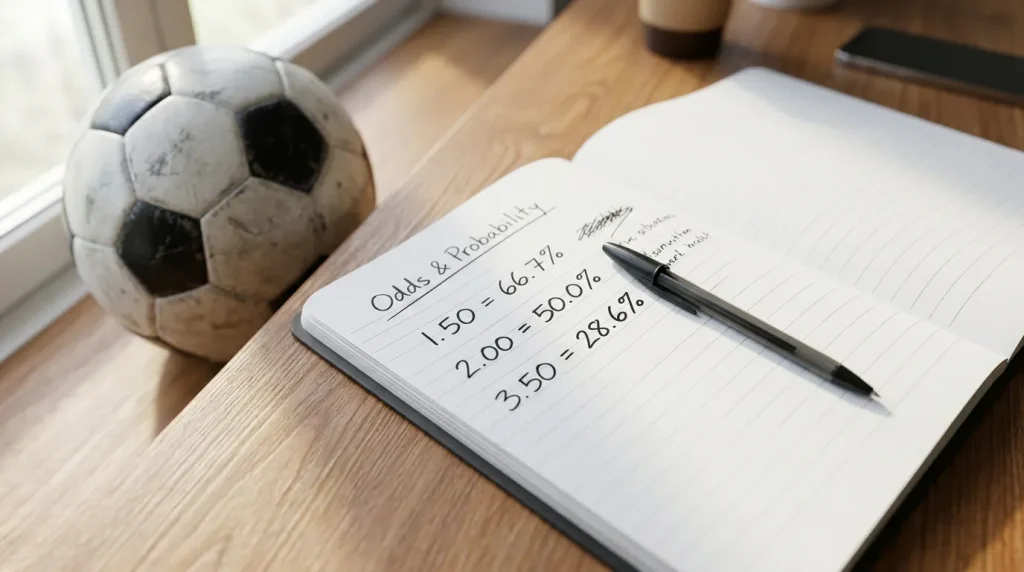 Odds & Probability
1.50 = 66.7%
2.00 = 50.0%
3.50 = 28.6%